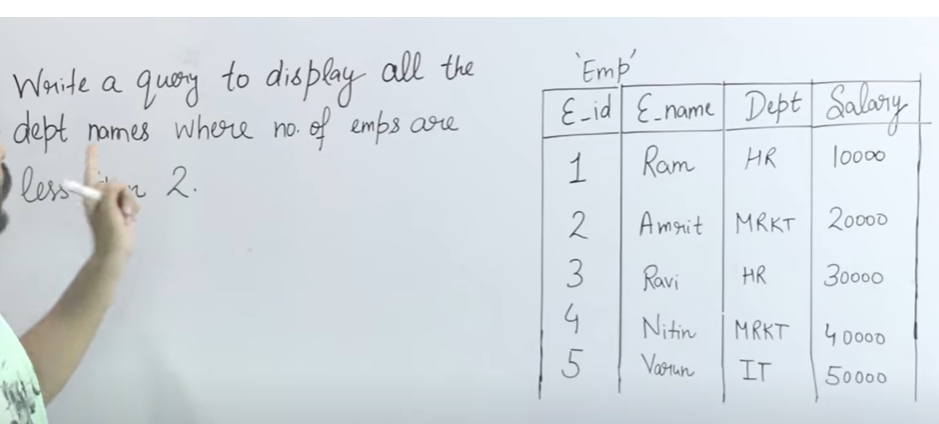 Write a query to display all the
dept names where no. of emps are
less 2.
'Emp'
E_id E_name Dept Salary
1 Ram HR 10000
2 Amrit MRKT 20000
3 Ravi HR 30000
4 Nitin MRKT 40000
5 Varun IT 50000